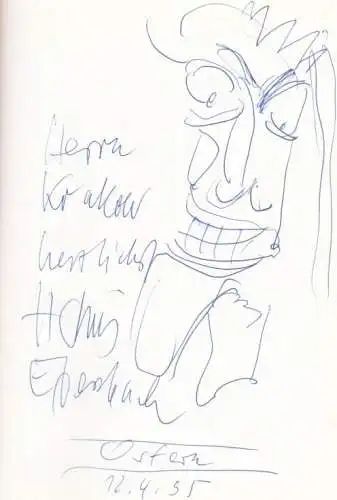 Herrn
Krakow
herzlichst
Ebersbach
Ostern
12.4.95